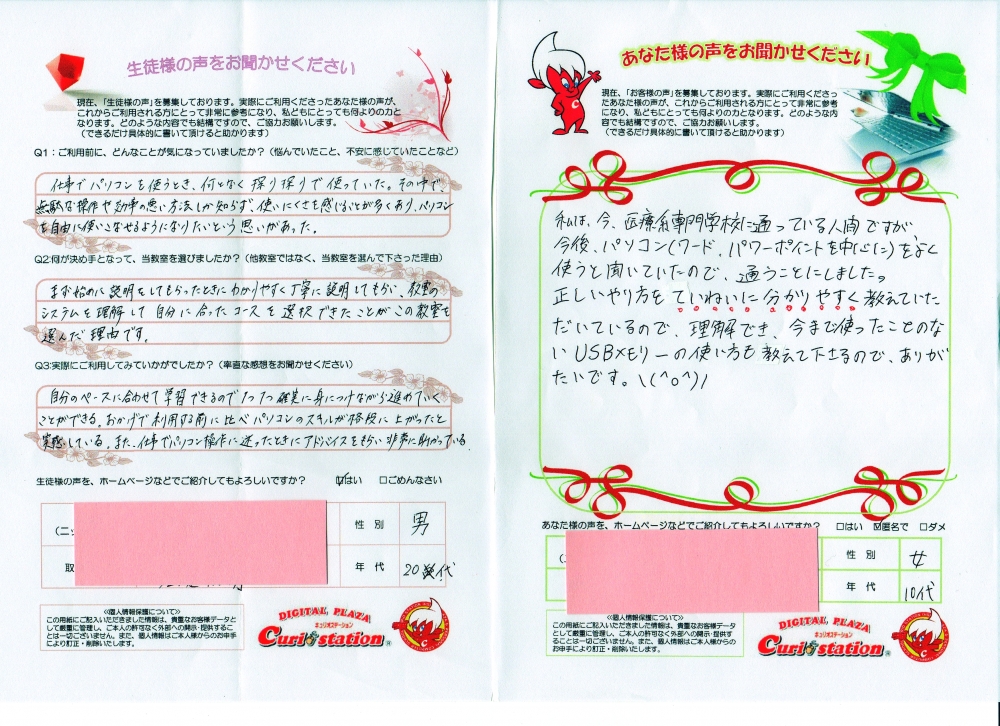 生徒様の声をお聞かせください
現在、「生徒様の声」を募集しております。実際にご利用くださったあなた様の声が、
これからご利用される方にとって非常に参考になり、私どもにとっても何よりの力と
なります。どのような内容でも結構ですので、ご協力お願いします。
（できるだけ具体的に書いて頂けると助かります）
Q1：ご利用前に、どんなことが気になっていましたか？（悩んでいたこと、不安に感じていたことなど）
仕事でパソコンを使うとき、何となく探り探りで使っていた。その中で、
無駄な操作や効率の悪い方法しか知らず、使いにくさを感じることが多くあり、パソコン
を自由に使いこなせるようになりたいという思いがあった。
Q2:何が決め手となって、当教室を選びましたか？（他教室ではなく、当教室を選んで下さった理由）
まず始めに説明をしてもらったときにわかりやすく丁寧に説明してもらい、教室の
システムを理解して自分に合ったコースを選択できたことがこの教室を
選んだ理由です。
Q3:実際にご利用してみていかがでしたか？（率直な感想をお聞かせください）
自分のペースに合わせて学習できるので1つ1つ確実に身につけながら進めていく
ことができる。おかげで利用する前に比べパソコンのスキルが格段に上がったと
実感している。また、仕事でパソコン操作に迷ったときにアドバイスをもらい非常に助かっている
生徒様の声を、ホームページなどでご紹介してもよろしいですか？ ☑はい □ごめんなさい
(ニッ
性 別 男
取
年 代 20歳代
≪個人情報保護について≫
この用紙にご記入いただきました情報は、貴重なお客様データと
して厳重に管理し、ご本人の許可なく外部への開示・提供するこ
とは一切ございません。また、個人情報はご本人様からのお申手
により訂正・削除いたします。
DIGITAL PLAZA
キュリオステーション
Curio station
あなた様の声をお聞かせください
現在、「お客様の声」を募集しております。実際にご利用くださっ
たあなた様の声が、これからご利用される方にとって非常に参考
になり、私どもにとっても何よりの力となります。どのような内
容でも結構ですので、ご協力お願いします。
（できるだけ具体的に書いて頂けると助かります）
私は、今、医療系専門学校に通っている人間ですが、
今後、パソコン(ワード、パワーポイントを中心に)をよく
使うと聞いていたので、通うことにしました。
正しいやり方をていねいに分かりやすく教えていた
だいているので、理解でき、今まで使ったことのな
いUSBメモリーの使い方も教えて下さるので、ありが
たいです。\(^o^)/
あなた様の声を、ホームページなどでご紹介してもよろしいですか？ □はい ☑匿名で □ダメ
性 別 女
年 代 10代
≪個人情報保護について≫
この用紙にご記入いただきました情報は、貴重なお客様データ
として厳重に管理し、ご本人の許可なく外部への開示・提供す
ることは一切ございません。また、個人情報はご本人様からの
お申手により訂正・削除いたします。
DIGITAL PLAZA
キュリオステーション
Curio station